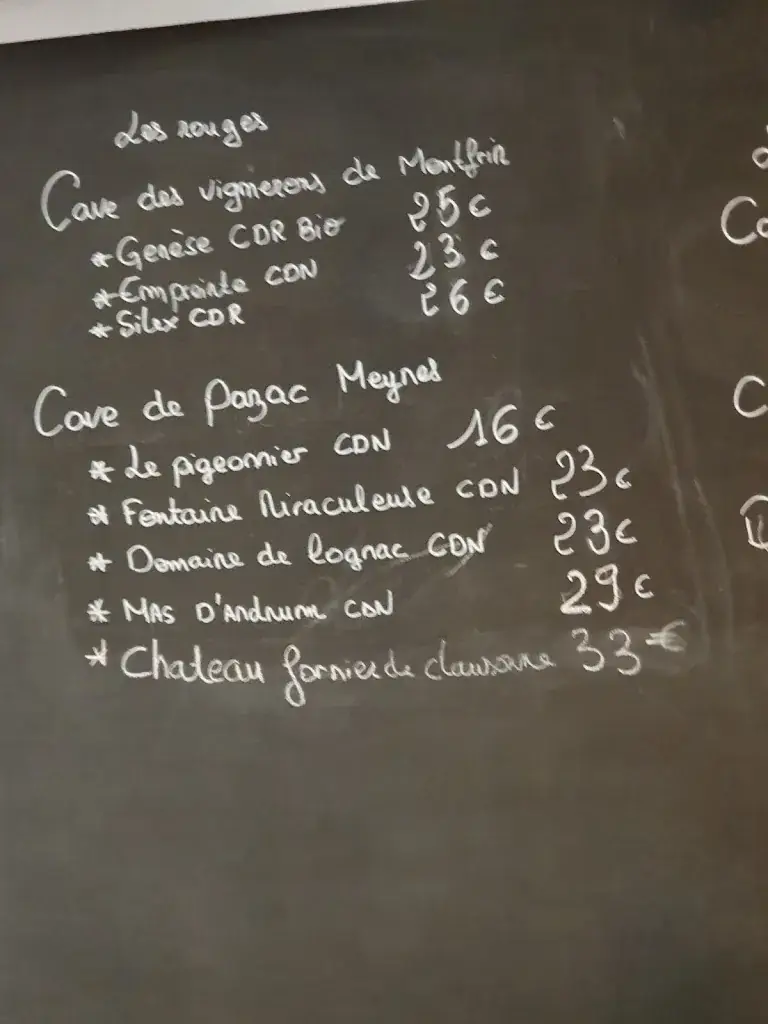 Les rouges
Cave des vignerons de Montfrin
* Genèse CDR Bio 25€
* Empreinte CDN 23€
* Silex CDR 26€
Cave de Pazac Meynes
* Le pigeonnier CDN 16€
* Fontaine Miraculeuse CDN 23€
* Domaine de lognac CDN 23€
* MAS D'Andrum CDN 29€
* Chateau fornier de clausonne 33€
Ca
C